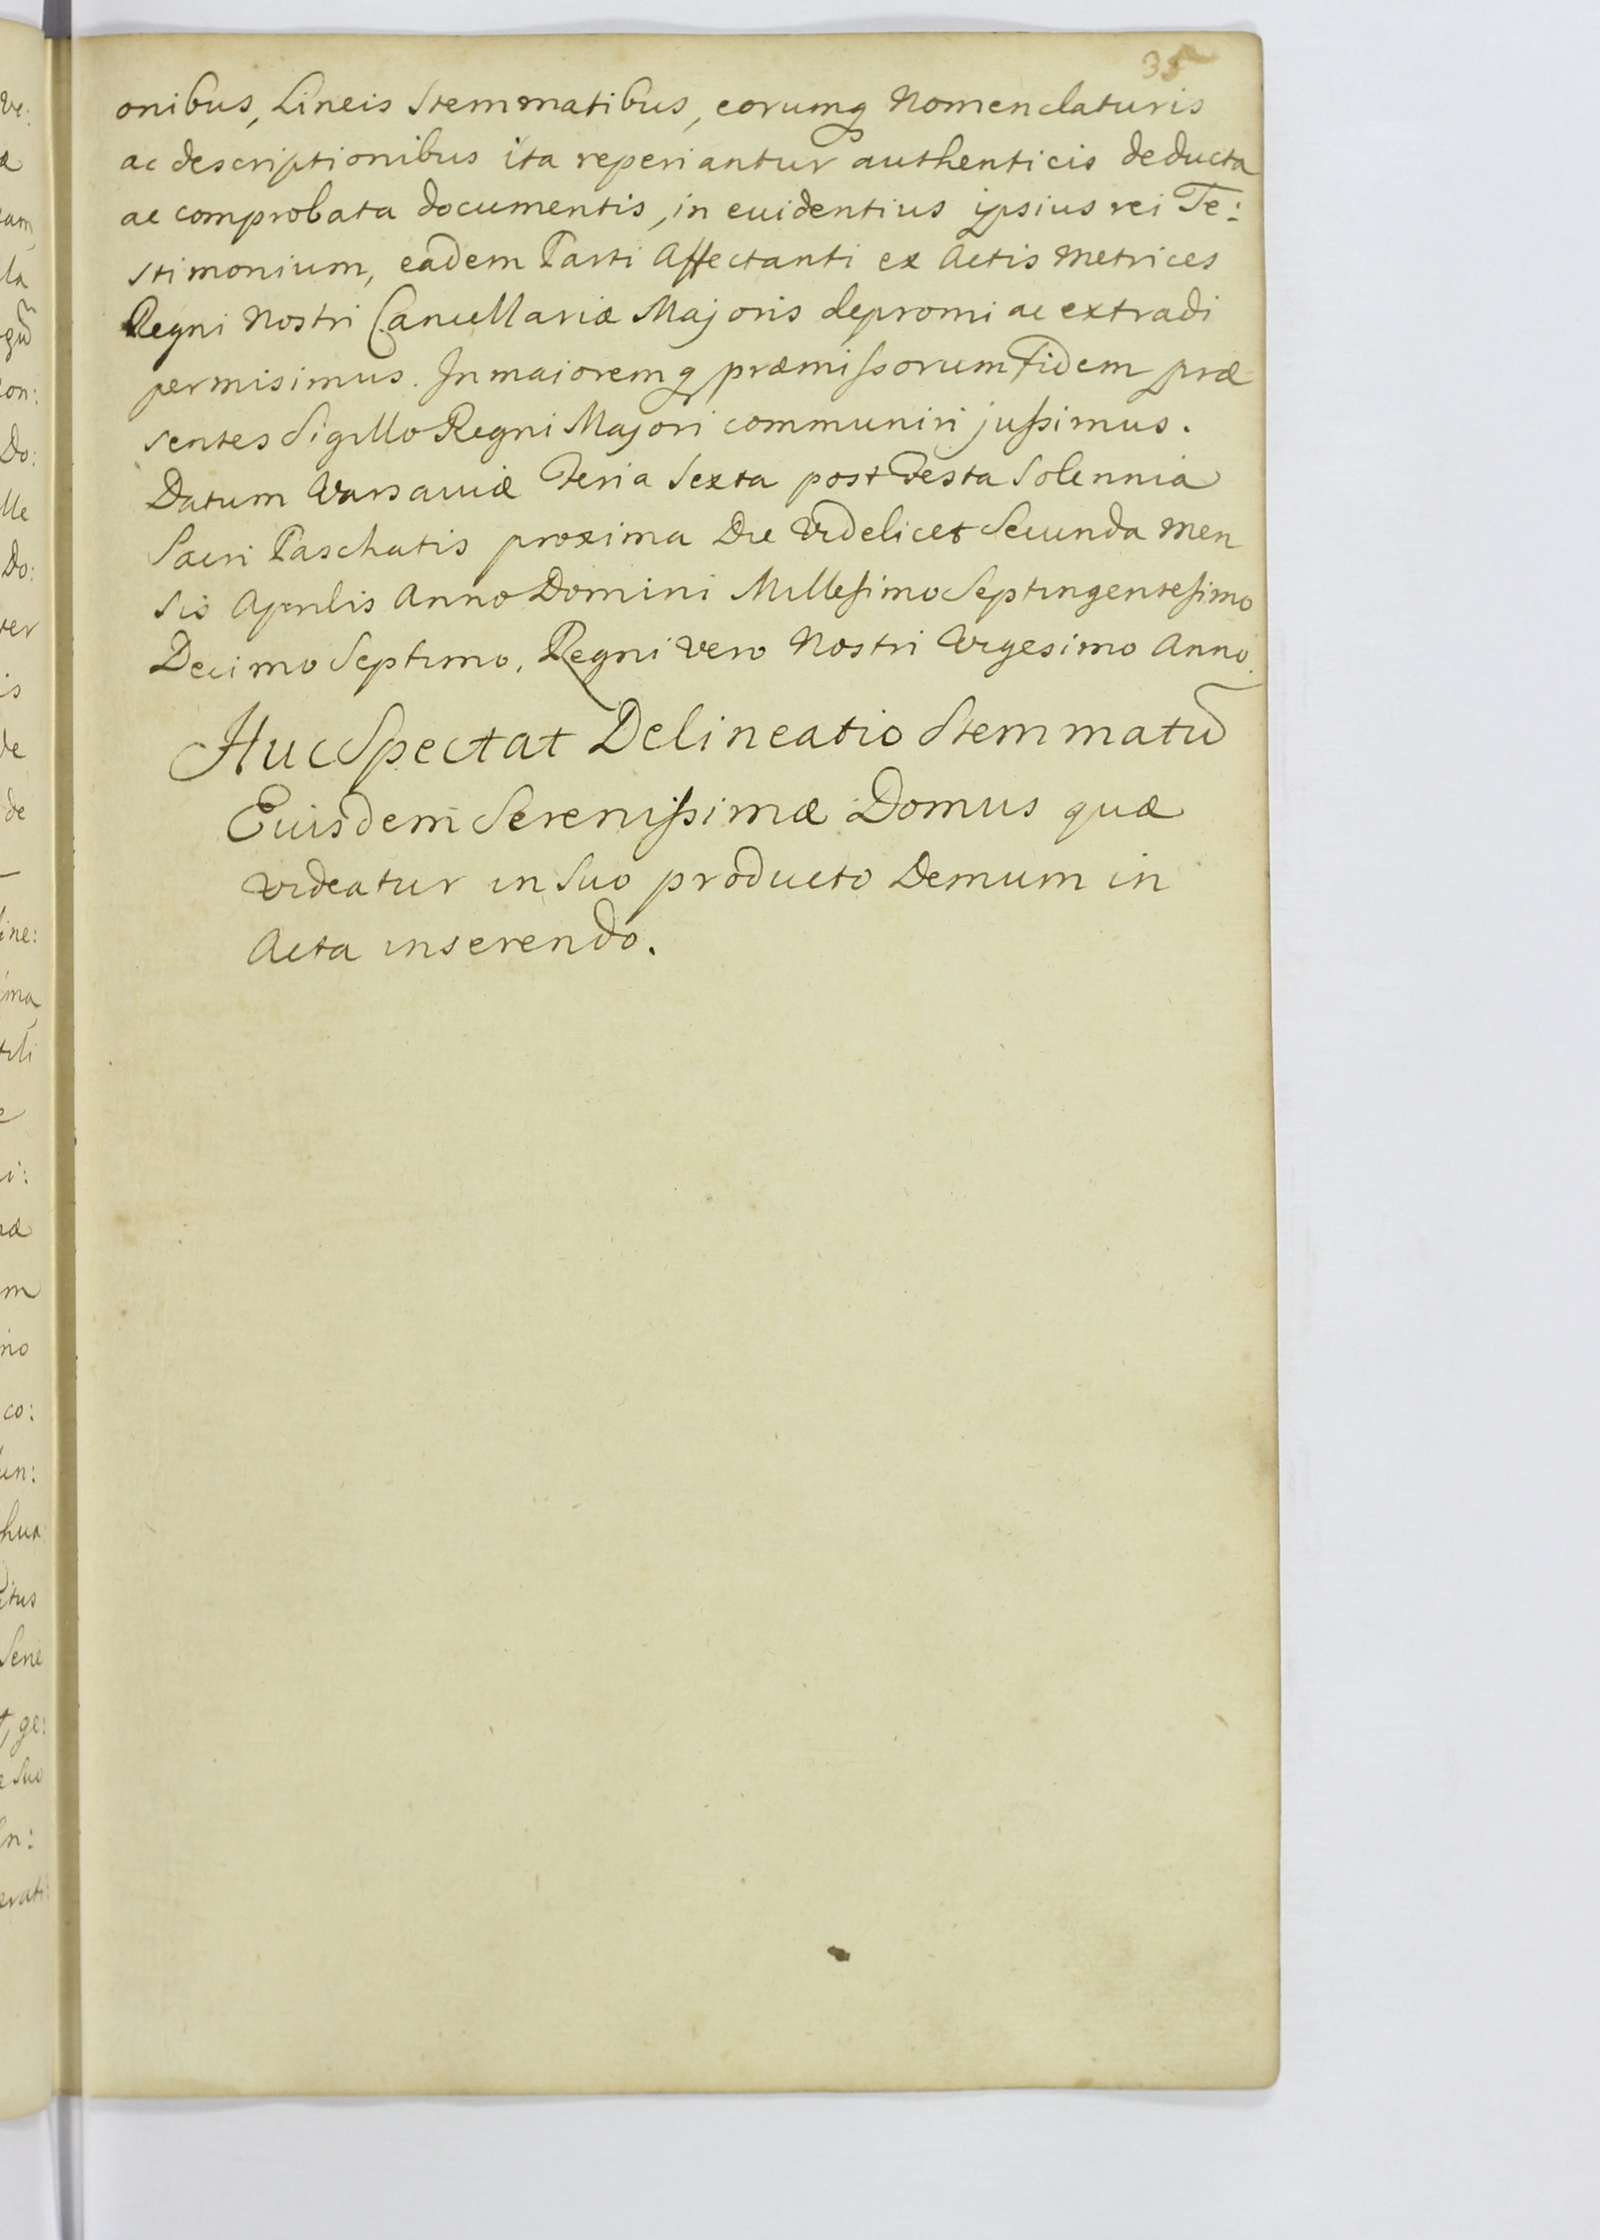 35
onibus, Lineis Stemmatibus, eorumq Nomenclaturis
ac descriptionibus ita reperiantur authenticis deducta
ac comprobata documentis, in euidentius ipsius rei Te:
stimonium, eadem Parti Affectanti ex Actis Metrices
Regni Nostri Cancellariæ Majoris depromi ac extradi
permisimus. In maioremq præmissorum Fidem præ
sentes Sigillo Regni Majori communiri jussimus.
Datum Varsauiæ Feria Sexta post Festa Solennia
Sacri Paschatis proxima Die Videlicet Secunda Men
sis Aprilis Anno Domini Millesimo Septingentesimo
Decimo Septimo, Regni vero Nostri Vigesimo Anno.
Huc Spectat Delineatio Stemmatū
Eiusdem Serenissimæ Domus quæ
videatur in Suo producto Demum in
Acta inserendo.